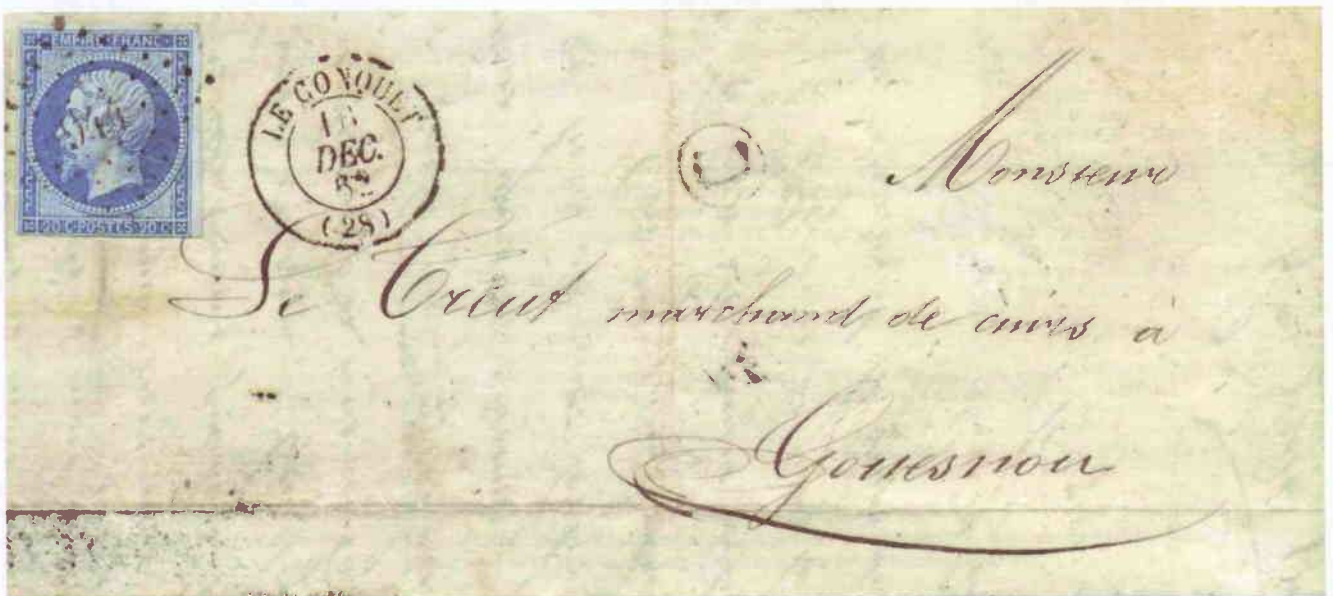 EMPIRE FRANC
20 C POSTES 20 C
LE CONQUET
DEC.
(28)
Monsieur
Le Treut marchand de cuirs à
Gouesnou